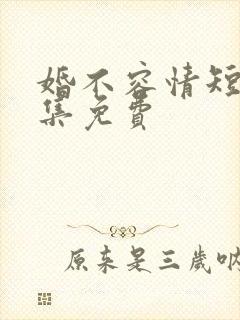 婚不容情短
集免费
原来是三岁呐